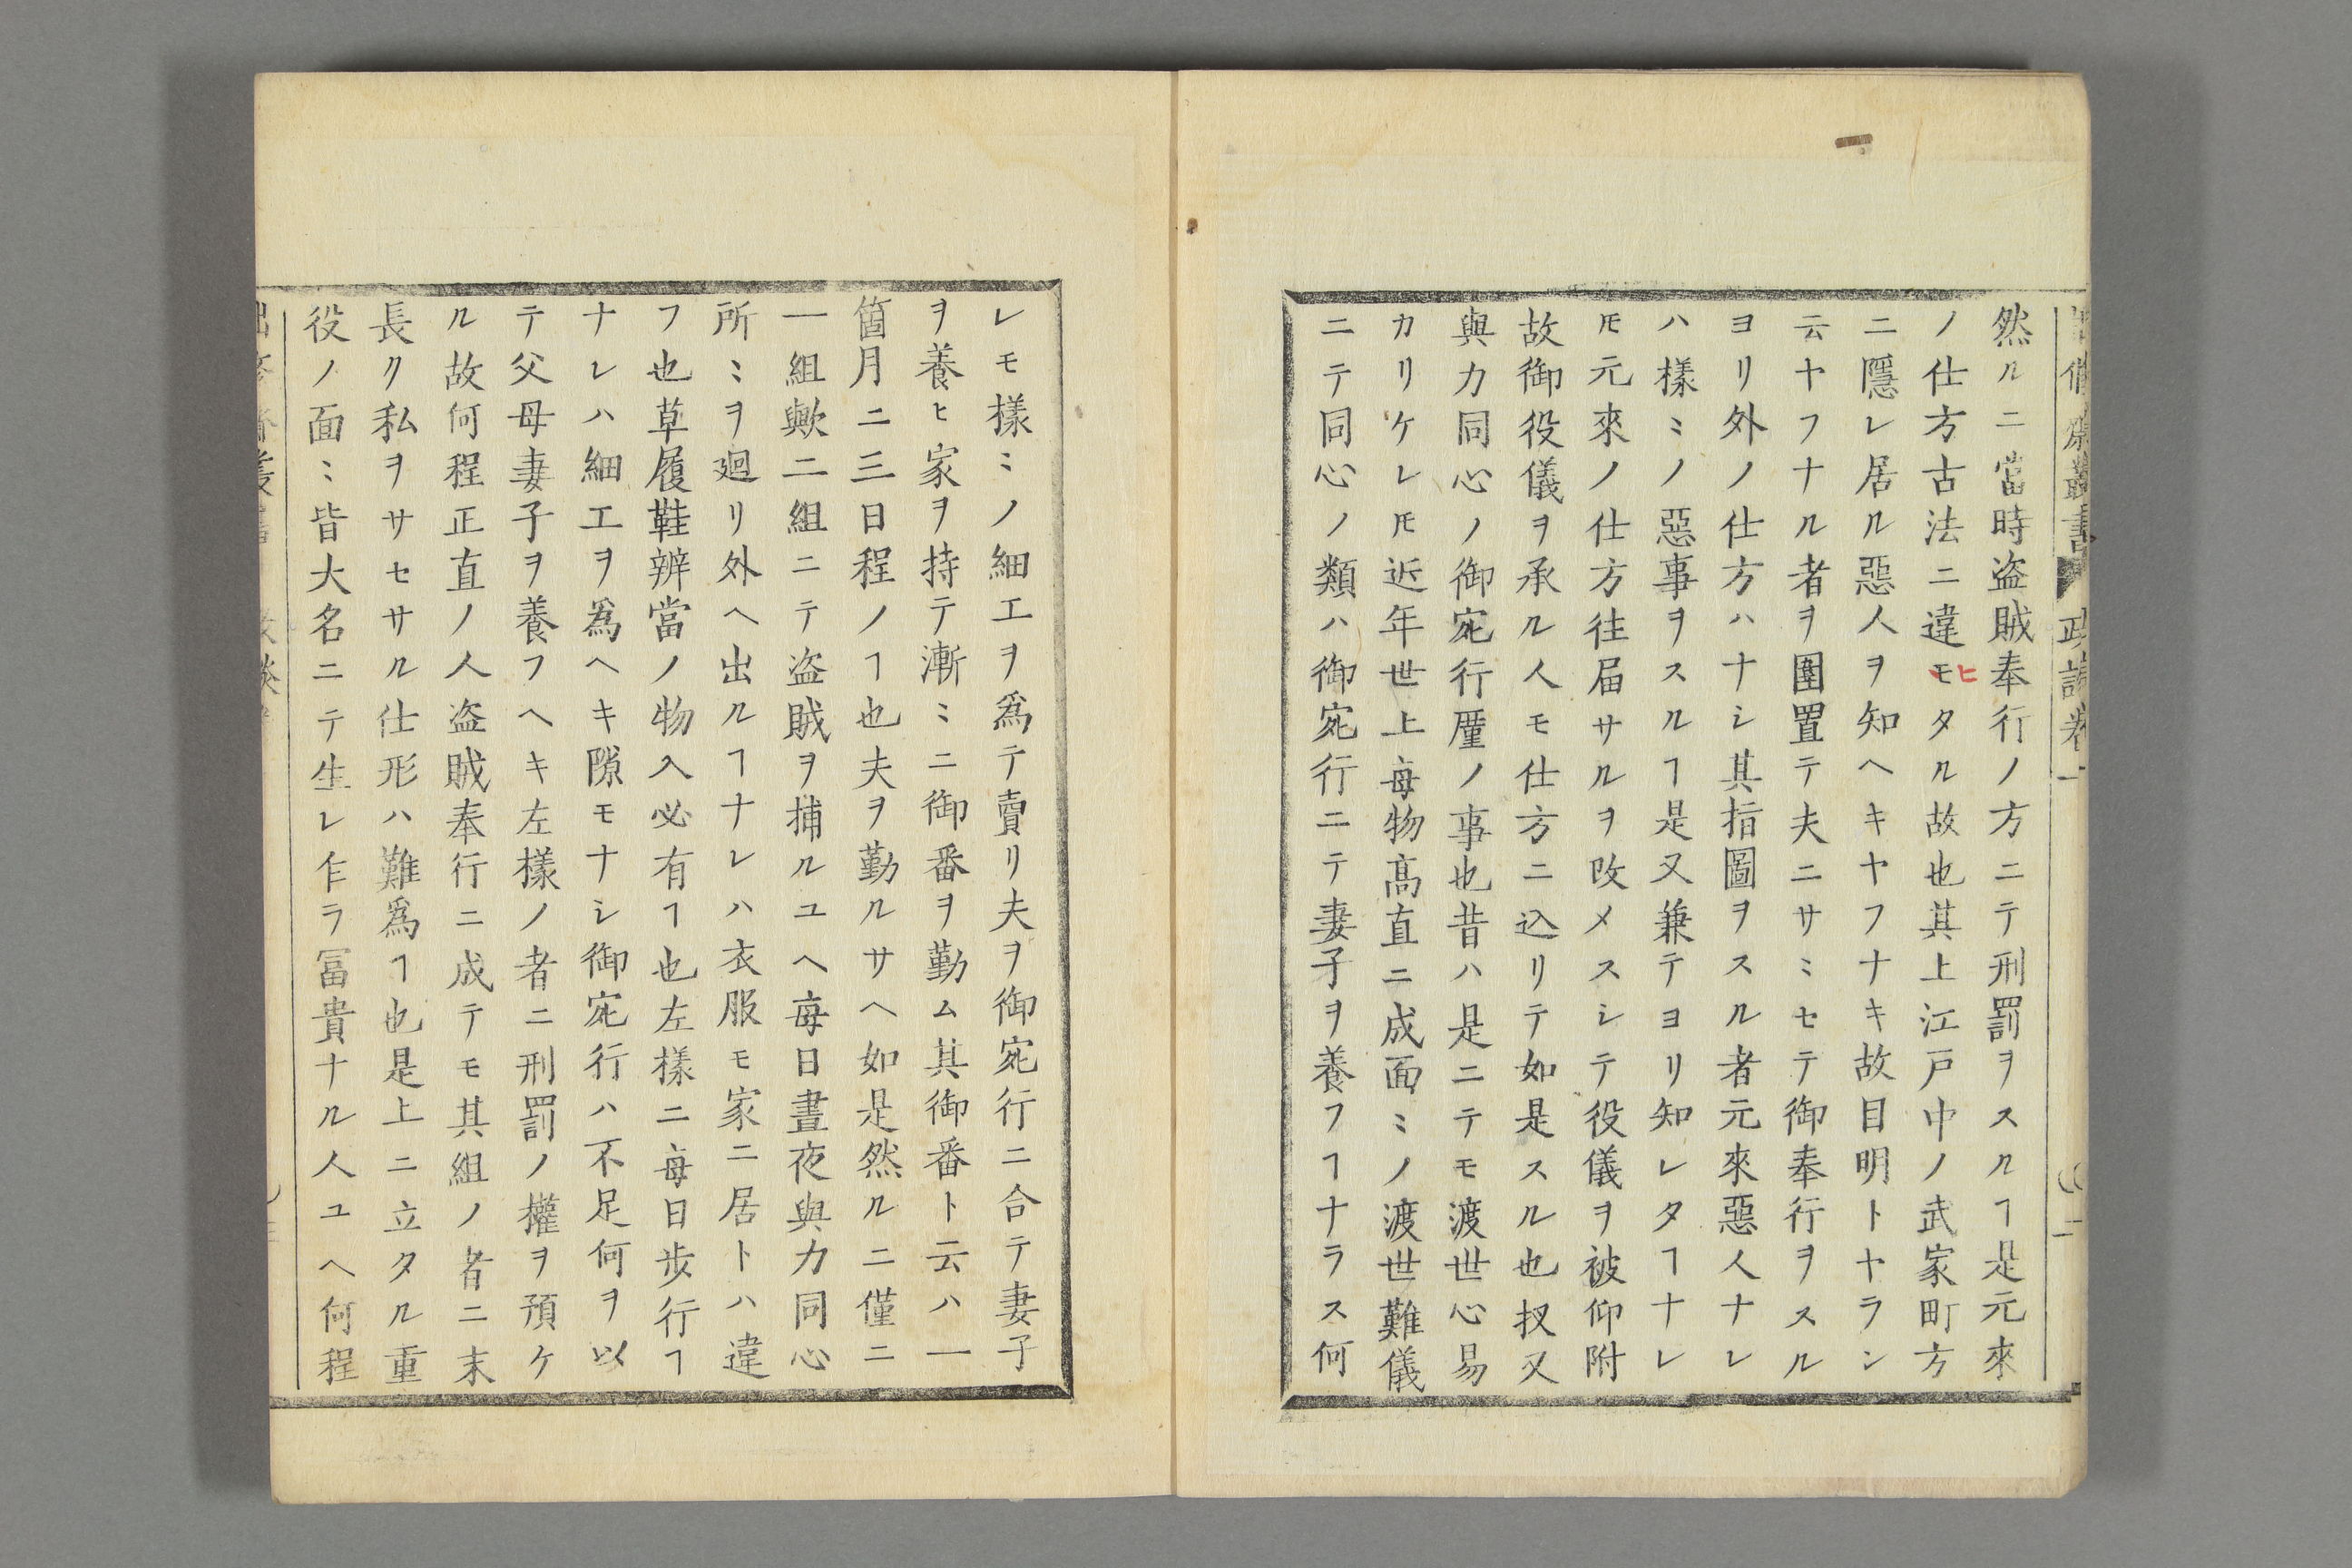 政談卷一
然ルニ當時盗賊奉行ノ方ニテ刑罰ヲスルヿ是元來
ノ仕方古法ニ違モヒタル故也其上江戸中ノ武家町方
ニ隱レ居ル惡人ヲ知ヘキヤフナキ故目明トヤラン
云ヤフナル者ヲ圍置テ夫ニサミセテ御奉行ヲスル
ヨリ外ノ仕方ハナシ其指圖ヲスル者元來惡人ナレ
ハ樣〻ノ惡事ヲスルヿ是又兼テヨリ知レタヿナレ
𪜈元來ノ仕方徃届サルヲ改メスシテ役儀ヲ被仰附
故御役儀ヲ承ル人モ仕方ニ込リテ如是スル也扠又
與力同心ノ御宛行𢋨ノ事也昔ハ是ニテモ渡世心易
カリケレ𪜈近年世上毎物髙直ニ成面〻ノ渡世難儀
ニテ同心ノ類ハ御宛行ニテ妻子ヲ養フヿナラス何
レモ樣〻ノ細工ヲ爲テ賣リ夫ヲ御宛行ニ合テ妻子
ヲ養ヒ家ヲ持テ漸〻ニ御番ヲ勤ム其御番ト云ハ一
箇月ニ三日程ノヿ也夫ヲ勤ルサヘ如是然ルニ僅ニ
一組歟二組ニテ盗賊ヲ捕ルユヘ毎日晝夜與力同心
所〻ヲ廻リ外ヘ出ルヿナレハ衣服モ家ニ居トハ違
フ也草履鞋辨當ノ物入必有ヿ也左樣ニ毎日歩行ヿ
ナレハ細工ヲ爲ヘキ隙モナシ御宛行ハ不足何ヲ以
テ父母妻子ヲ養フヘキ左樣ノ者ニ刑罰ノ權ヲ預ケ
ル故何程正直ノ人盗賊奉行ニ成テモ其組ノ者ニ末
長ク私ヲサセサル仕形ハ難爲ヿ也是上ニ立タル重
役ノ面〻皆大名ニテ生レ乍ラ冨貴ナル人ユヘ何程